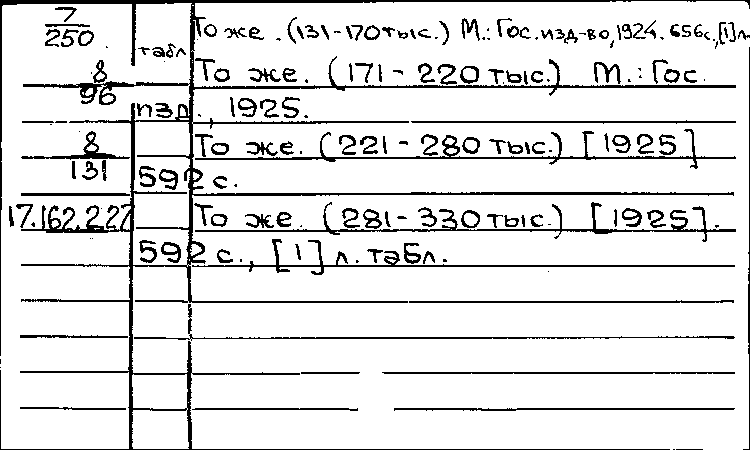 7/250 То же. (131-170 тыс.) М.: Гос. изд-во, 1924. 656 с., [1] л.
табл
8/96 То же. (171-220 тыс.) М.: Гос.
изд., 1925.
8/131 То же. (221-280 тыс.) [1925]
592 с.
17.162.227 То же. (281-330 тыс.) [1925].
592 с., [1] л. табл.